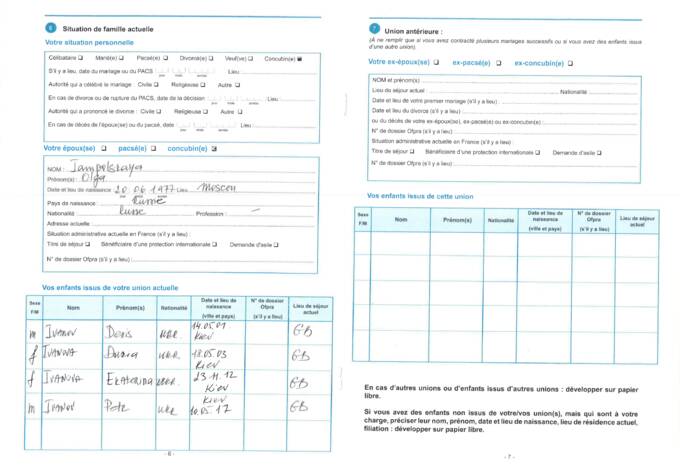 6 Situation de famille actuelle
Votre situation personnelle
Célibataire Marié(e) Pacsé(e) Divorcé(e) Veuf(ve) Concubin(e)
S'il y a lieu, date du mariage ou du PACS Lieu :
Autorité qui a célébré le mariage : Civile Religieuse Autre
En cas de divorce ou de rupture du PACS, date de la décision
Autorité qui a prononcé le divorce : Civile Religieuse Autre
En cas de décès de l'époux(se) ou du pacsé, date Lieu :
Votre époux(se) pacsé(e) concubin(e)
NOM : Iampolskaya
Prénom(s) : Olga
Date et lieu de naissance 20 06 1977 Lieu Moscou
Pays de naissance : Russie
Nationalité Russe Profession : –
Adresse actuelle :
Situation administrative actuelle en France (s'il y a lieu) :
Titre de séjour Bénéficiaire d'une protection internationale Demande d'asile
N° de dossier Ofpra (s'il y a lieu) :
Vos enfants issus de votre union actuelle
Sexe F/M Nom Prénom(s) Nationalité Date et lieu de naissance (ville et pays) N° de dossier Ofpra (s'il y a lieu) Lieu de séjour actuel
m Ivanov Denis UKR. 14.05.01 Kiev GB
f Ivanova UKR. 18.05.03 Kiev GB
f Ivanova Ekaterina UKR. 23.11.12 Kiev GB
m Ivanov Petr UKR Kiev 10.05.17 GB
- 6 -
7 Union antérieure :
(A ne remplir que si vous avez contracté plusieurs mariages successifs ou si vous avez des enfants issus
d'une autre union).
Votre ex-époux(se) ex-pacsé(e) ex-concubin(e)
NOM et prénom(s) :
Lieu de séjour actuel : Nationalité
Date et lieu de votre premier mariage (s'il y a lieu) :
Date et lieu du divorce (s'il y a lieu) :
ou du décès de votre ex-époux(se), ex-pacsé(e) ou ex-concubin(e) :
N° de dossier Ofpra (s'il y a lieu) :
Situation administrative actuelle en France (s'il y a lieu) :
Titre de séjour Bénéficiaire d'une protection internationale Demande d'asile
N° de dossier Ofpra (s'il y a lieu) :
Vos enfants issus de cette union
Sexe F/M Nom Prénom(s) Nationalité Date et lieu de naissance (ville et pays) N° de dossier Ofpra (s'il y a lieu) Lieu de séjour actuel
En cas d'autres unions ou d'enfants issus d'autres unions : développer sur papier
libre.
Si vous avez des enfants non issus de votre/vos union(s), mais qui sont à votre
charge, préciser leur nom, prénom, date et lieu de naissance, lieu de résidence actuel,
filiation : développer sur papier libre.
- 7 -